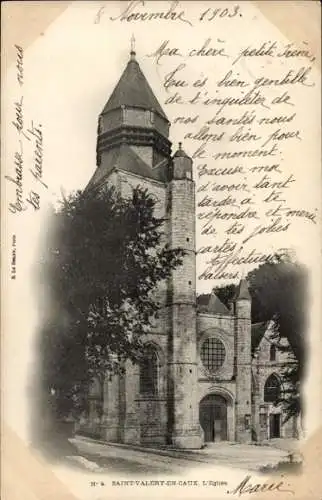 8 Novembre 1903.
Ma chère petite Irène,
Tu es bien gentille
de t'inquiéter de
nos santés nous
allons bien pour
le moment.
Excuse ma
d'avoir tant
tarder à te
répondre et merci
de tes jolies
cartes.
Effectueux
baisers
Marie
Embrasse pour nous
les parents
Nº 4. SAINT-VALERY-EN-CAUX. L'Église